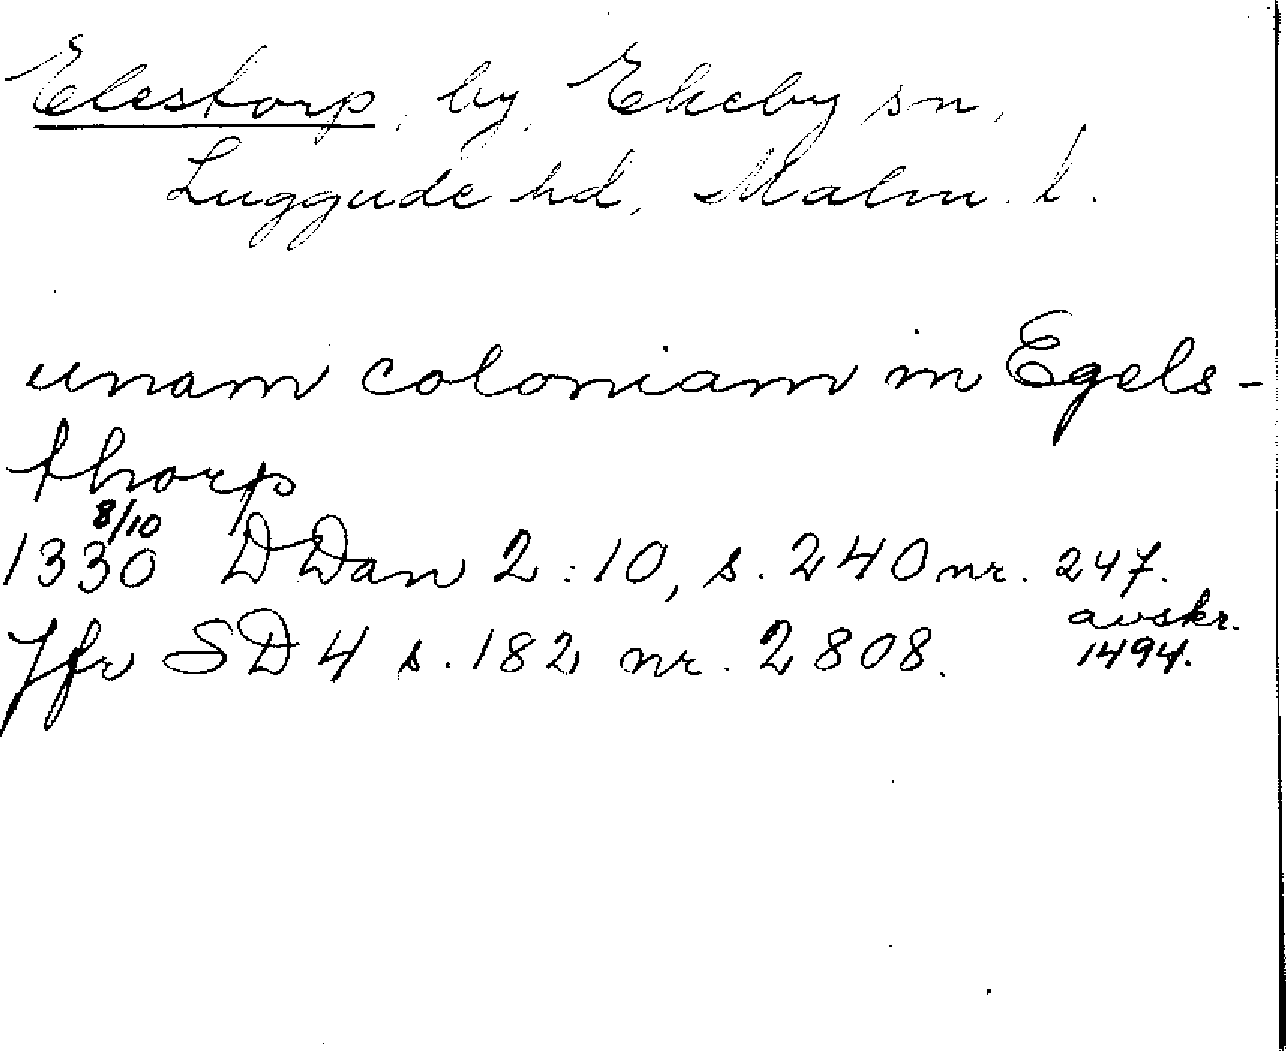 Elestorp, by, Ekeby sn,
Luggude hd, Malm. l.
unam coloniam in Egels-
thorp
8/10
1330 DDan 2:10, s. 240 nr. 247.
avskr.
Jfr SD 4 s. 182 nr. 2808. 1494.